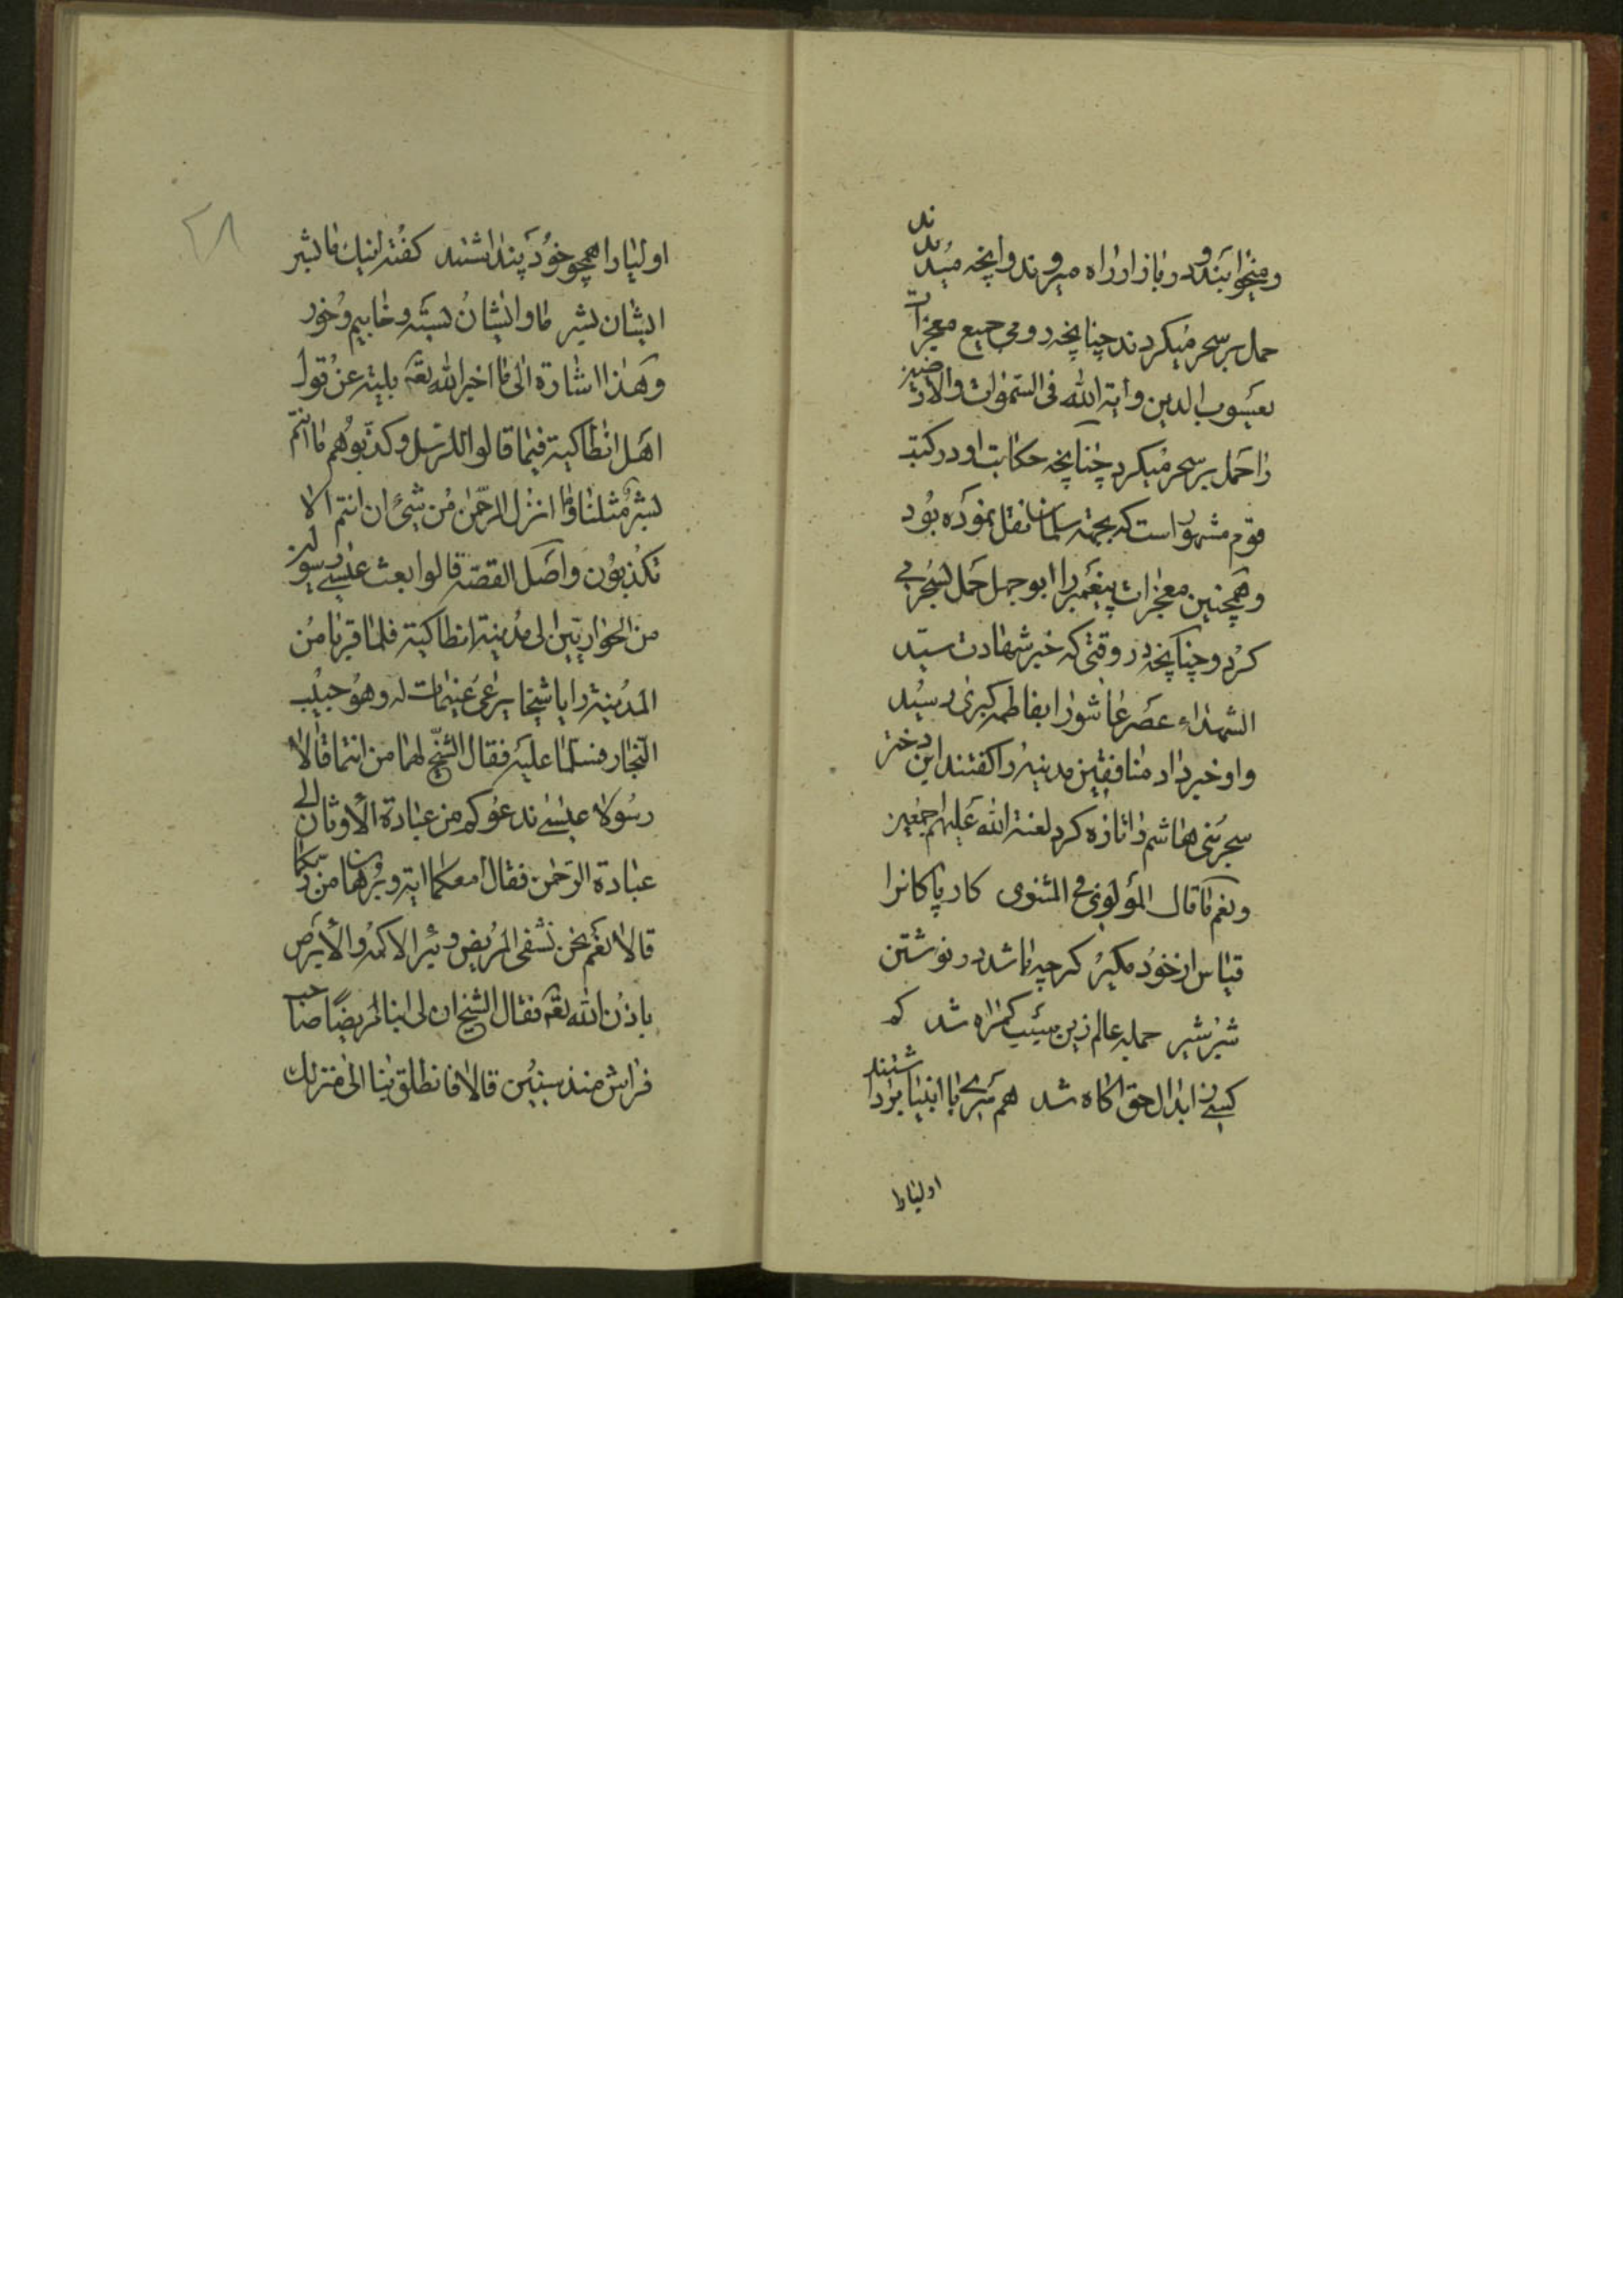 و میخوابند و در بازار راه میروند و آنچه میدیدند
حمل بر سحر میکردند چنانچه دومی جمیع معجزات
یعسوب الدین و آیة الله فی السموات والارضین
را حمل بر سحر میکرد چنانچه حکایت او در کتب
قوم مشهور است که بجهة سلمان نقل نموده بود
و همچنین معجزات پیغمبر را ابو جهل حمل بسحر می
کرد و چنانچه در وقتی که خبر شهادت سید
الشهداء عصر عاشورا بفاطمه کبری رسید
و او خبر داد منافقین مدینه را گفتند این دختر
سحر بنی هاشم را تازه کرد لعنة الله علیهم اجمعین
و نعم ما قال المولوی فی المثنوی کار پاکانرا
قیاس از خود مگیر گر چه باشد در نوشتن
شیر شیر جمله عالم زین سبب گمراه شد کم
کسی ز ابدال حق آگاه شد همسری با انبیا برداشتند
اولیا را
۲۸
اولیا را همچو خود پنداشتند گفته اینک ما بشر
ایشان بشر ما و ایشان بسته و خابیم و خور
و هذا اشارة الی ما اخبر الله تعه بلیته عن قول
اهل انطاکیة فیما قالوا للرسل و کذبوهم ما انتم
بشر مثلنا و ما انزل الرحمن من شیء ان انتم الا
تکذبون و اصل القصة قالوا بعث عیسی رسولین
من الحواریین الی مدینة انطاکیة فلما قربا من
المدینة رایا شیخا یرعی غنیمات له و هو حبیب
النجار فسلما علیه فقال الشیخ لهما من انتما قالا
رسولا عیسی ندعوکم من عبادة الاوثان الی
عبادة الرحمن فقال امعکما آیة و برهان من ربکما
قالا نعم نحن نشفی المریض و نبرأ الاکمه و الابرص
باذن الله تعه فقال الشیخ ان لی ابنا مریضا صاحب
فراش منذ سنین قالا فانطلق بنا الی منزلک